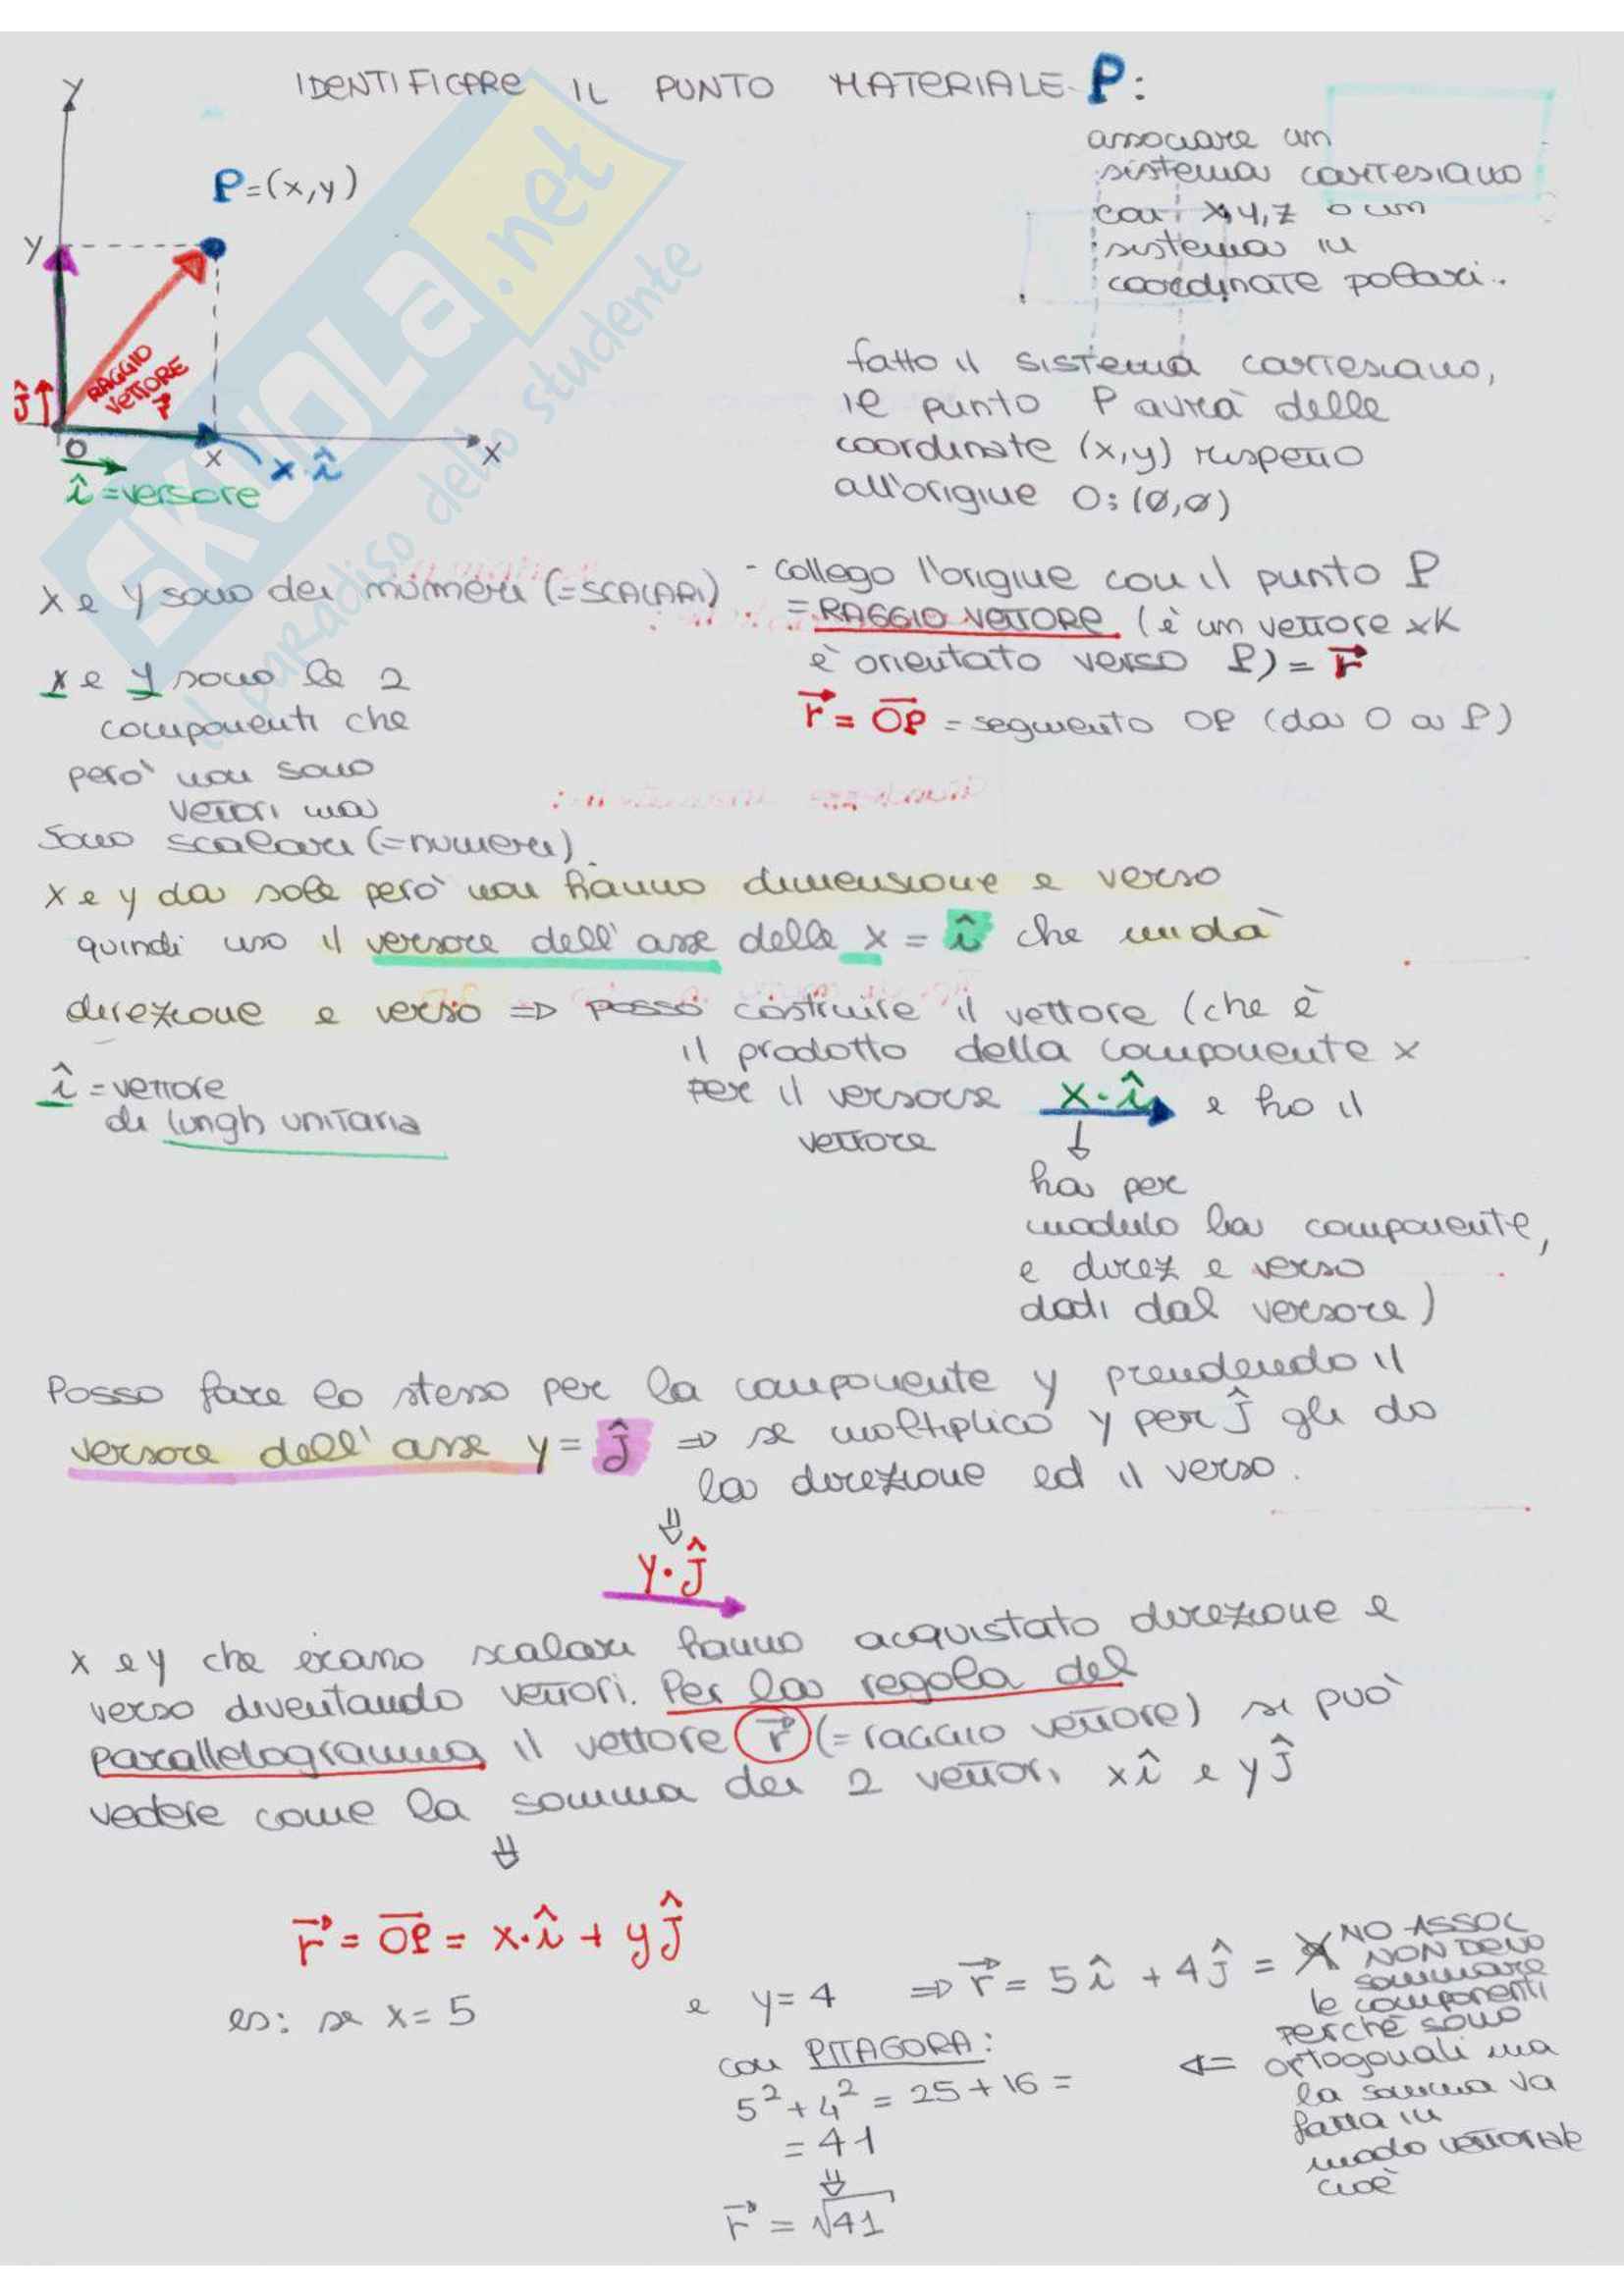 IDENTIFICARE IL PUNTO MATERIALE P:
associare un
sistema cartesiano
con x,y,z o un
sistema in
coordinate polari.
Y
P=(x,y)
Y
RAGGIO
VETTORE
r⃗
ĵ
O
X
X
x·î
î=versore
fatto il sistema cartesiano,
il punto P avrà delle
coordinate (x,y) rispetto
all'origine O:(Ø,Ø)
x e y sono dei numeri (=SCALARI)
- collego l'origine con il punto P
=RAGGIO VETTORE (è un vettore xK
è orientato verso P) = r⃗
r⃗ = OP = segmento OP (da O a P)
x e y sono le 2
componenti che
però non sono
vettori ma
sono scalari (=numeri).
x e y da sole però non hanno dimensione e verso
quindi uso il versore dell'asse delle x = î che mi dà
direzione e verso => posso costruire il vettore (che è
il prodotto della componente x
per il versore x·î e ho il
vettore
î = vettore
di lungh unitaria
ha per
modulo la componente,
e direz e verso
dati dal versore)
Posso fare lo stesso per la componente y prendendo il
versore dell'asse y = ĵ => se moltiplico y per ĵ gli do
la direzione ed il verso.
y·ĵ
x e y che erano scalari hanno acquistato direzione e
verso diventando vettori. Per la regola del
parallelogramma il vettore r⃗ (=raggio vettore) si può
vedere come la somma dei 2 vettori xî e yĵ
r⃗ = OP = x·î + yĵ
es: se x=5 e y=4 => r⃗ = 5î + 4ĵ = 9
NO ASSOC
NON DEVO
sommare
le componenti
perché sono
<= ortogonali ma
la somma va
fatta in
modo vettoriale
cioè
con PITAGORA:
5² + 4² = 25 + 16 =
= 41
r⃗ = √41
SKUOLA.net
il paradiso dello studente